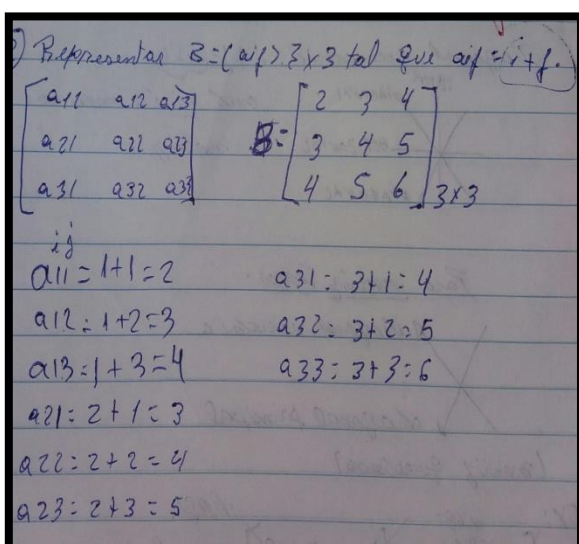 ) Representar B=(aij)3x3 tal que aij = i+j.
a11 a12 a13
a21 a22 a23
a31 a32 a33
B= 2 3 4
3 4 5
4 5 6 3x3
ij
a11 = 1+1=2
a12 = 1+2=3
a13 = 1+3=4
a21 = 2+1=3
a22 = 2+2=4
a23 = 2+3=5
a31 = 3+1=4
a32 = 3+2=5
a33 = 3+3=6